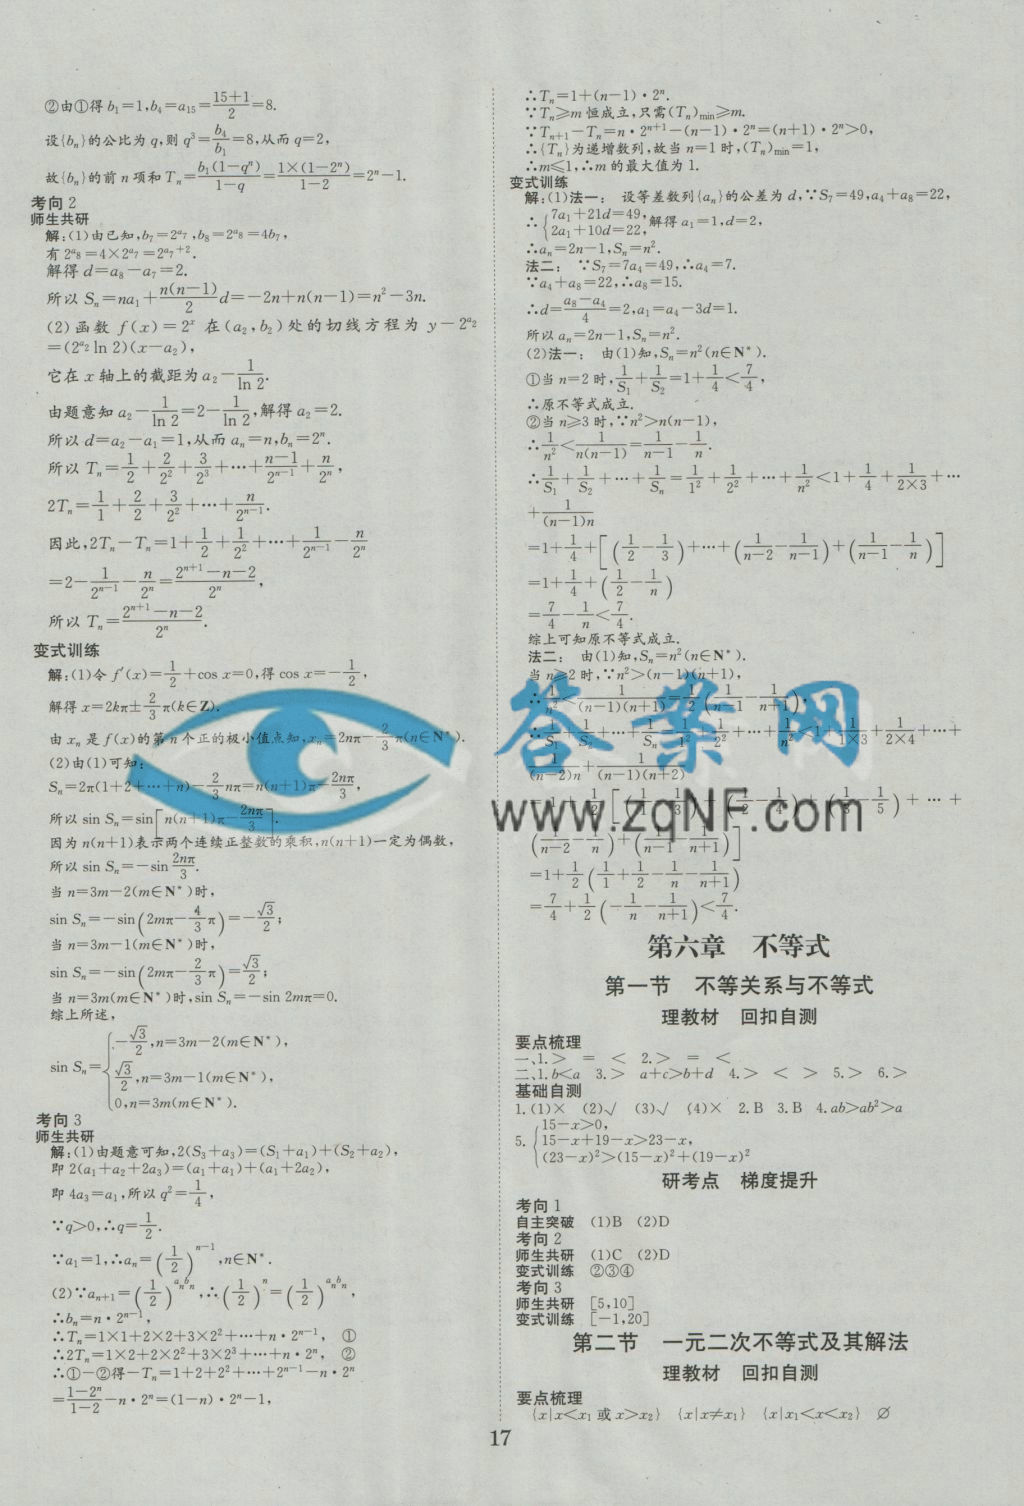 ②由①得b₁=1,b₄=a₁₅=(15+1)/2=8.
设{bₙ}的公比为q,则q³=b₄/b₁=8,从而q=2,
故{bₙ}的前n项和Tₙ=b₁(1-qⁿ)/(1-q)=1×(1-2ⁿ)/(1-2)=2ⁿ-1.
考向2
师生共研
解:(1)由已知,b₇=2^(a₇),b₈=2^(a₈)=4b₇,
有2^(a₈)=4×2^(a₇)=2^(a₇+2).
解得d=a₈-a₇=2.
所以Sₙ=na₁+n(n-1)/2 d=-2n+n(n-1)=n²-3n.
(2)函数f(x)=2ˣ在(a₂,b₂)处的切线方程为y-2^(a₂)
=(2^(a₂)ln 2)(x-a₂),
它在x轴上的截距为a₂-1/ln 2.
由题意知a₂-1/ln 2=2-1/ln 2,解得a₂=2.
所以d=a₂-a₁=1,从而aₙ=n,bₙ=2ⁿ.
所以Tₙ=1/2+2/2²+3/2³+…+(n-1)/2ⁿ⁻¹+n/2ⁿ,
2Tₙ=1/1+2/2+3/2²+…+n/2ⁿ⁻¹.
因此,2Tₙ-Tₙ=1+1/2+1/2²+…+1/2ⁿ⁻¹-n/2ⁿ
=2-1/2ⁿ⁻¹-n/2ⁿ=(2ⁿ⁺¹-n-2)/2ⁿ,
所以Tₙ=(2ⁿ⁺¹-n-2)/2ⁿ.
变式训练
解:(1)令f′(x)=1/2+cos x=0,得cos x=-1/2,
解得x=2kπ±2/3π(k∈Z).
由xₙ是f(x)的第n个正的极小值点知,xₙ=2nπ-2/3π(n∈N*).
(2)由(1)可知:
Sₙ=2π(1+2+…+n)-2/3nπ=n(n+1)π-2nπ/3,
所以sin Sₙ=sin[n(n+1)π-2nπ/3].
因为n(n+1)表示两个连续正整数的乘积,n(n+1)一定为偶数,
所以sin Sₙ=-sin 2nπ/3.
当n=3m-2(m∈N*)时,
sin Sₙ=-sin(2mπ-4/3π)=-√3/2;
当n=3m-1(m∈N*)时,
sin Sₙ=-sin(2mπ-2/3π)=√3/2;
当n=3m(m∈N*)时,sin Sₙ=-sin 2mπ=0.
综上所述,
sin Sₙ={-√3/2,n=3m-2(m∈N*),
√3/2,n=3m-1(m∈N*),
0,n=3m(m∈N*).
考向3
师生共研
解:(1)由题意可知,2(S₃+a₃)=(S₁+a₁)+(S₂+a₂),
即2(a₁+a₂+2a₃)=(a₁+a₁)+(a₁+2a₂),
即4a₃=a₁,所以q²=1/4,
∵q>0,∴q=1/2.
∵a₁=1,∴aₙ=(1/2)ⁿ⁻¹,n∈N*.
(2)∵aₙ₊₁=(1/2)^(aₙbₙ),∴(1/2)ⁿ=(1/2)^(aₙbₙ),
∴bₙ=n·2ⁿ⁻¹,
∴Tₙ=1×1+2×2+3×2²+…+n·2ⁿ⁻¹, ①
∴2Tₙ=1×2+2×2²+3×2³+…+n·2ⁿ, ②
∴①-②得-Tₙ=1+2+2²+…+2ⁿ⁻¹-n·2ⁿ
=(1-2ⁿ)/(1-2)-n·2ⁿ=(1-n)·2ⁿ-1,
∴Tₙ=1+(n-1)·2ⁿ.
∵Tₙ≥m恒成立,只需(Tₙ)min≥m.
∵Tₙ₊₁-Tₙ=n·2ⁿ⁺¹-(n-1)·2ⁿ=(n+1)·2ⁿ>0,
∴{Tₙ}为递增数列,故当n=1时,(Tₙ)min=1,
∴m≤1,∴m的最大值为1.
变式训练
解:(1)法一: 设等差数列{aₙ}的公差为d,∵S₇=49,a₄+a₈=22,
∴{7a₁+21d=49,
2a₁+10d=22, 解得a₁=1,d=2,
∴aₙ=2n-1,Sₙ=n².
法二: ∵S₇=7a₄=49,∴a₄=7.
∵a₄+a₈=22,∴a₈=15.
∴d=(a₈-a₄)/4=2,a₁=a₄-3d=1.
所以aₙ=2n-1,Sₙ=n².
(2)法一: 由(1)知,Sₙ=n²(n∈N*).
①当n=2时,1/S₁+1/S₂=1+1/4<7/4,
∴原不等式成立.
②当n≥3时,∵n²>n(n-1),
∴1/n²<1/(n(n-1))=1/(n-1)-1/n.
∴1/S₁+1/S₂+…+1/Sₙ=1/1²+1/2²+…+1/n²<1+1/4+1/(2×3)+…
+1/((n-1)n)
=1+1/4+[(1/2-1/3)+…+(1/(n-2)-1/(n-1))+(1/(n-1)-1/n)]
=1+1/4+(1/2-1/n)
=7/4-1/n<7/4.
综上可知原不等式成立.
法二: 由(1)知,Sₙ=n²(n∈N*).
当n≥2时,∵n²>(n-1)(n+1),
∴1/n²<1/((n-1)(n+1))=1/2(1/(n-1)-1/(n+1)),
∴1/S₁+1/S₂+…+1/Sₙ=1/1²+1/2²+…+1/n²<1+1/(1×3)+1/(2×4)+…+
1/((n-2)n)+1/((n-1)(n+2))
1+1/2[(1/1-1/3)+(1/2-1/4)+(1/3-1/5)+…+
(1/(n-2)-1/n)+(1/(n-1)-1/(n+1))]
=1+1/2(1/1+1/2-1/n-1/(n+1))
=7/4+1/2(-1/n-1/(n+1))<7/4.
答案网
www.zqNF.com
第六章 不等式
第一节 不等关系与不等式
理教材 回扣自测
要点梳理
一、1.> = < 2.> = <
二、1.b<a 3.> a+c>b+d 4.> < > 5.> 6.>
基础自测
1.(1)× (2)√ (3)√ (4)× 2.B 3.B 4.ab>ab²>a
5.{15-x>0,
15-x+19-x>23-x,
(23-x)²>(15-x)²+(19-x)²
研考点 梯度提升
考向1
自主突破 (1)B (2)D
考向2
师生共研 (1)C (2)D
变式训练 ②③④
考向3
师生共研 [5,10]
变式训练 [-1,20]
第二节 一元二次不等式及其解法
理教材 回扣自测
要点梳理
{x|x<x₁或x>x₂} {x|x≠x₁} {x|x₁<x<x₂} ∅
17